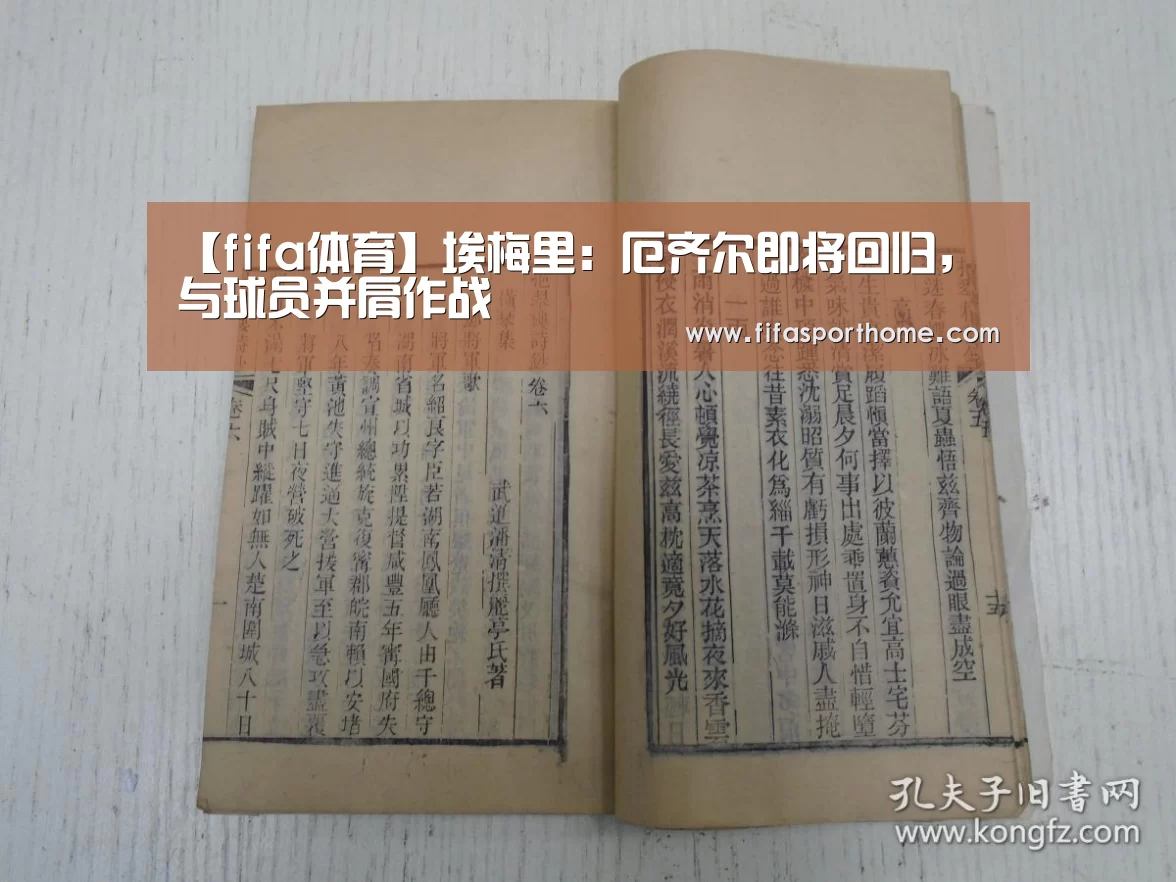 【fifa体育】埃梅里：厄齐尔即将回归，
与球员并肩作战
www.fifasporthome.com
迷春
冰難語夏蟲悟玆齊物論過眼盡成空
生貴
腹蹈愼當擇以彼蘭蕙資允宜高士宅芬
氣味
清賞足晨夕何事出處乘置身不自惜輕墮
橘中
沈溺昭質有虧損形神日滋戚人盡掩
過誰
念往昔素衣化爲緇千載莫能滌
雨消
人心頓覺凉茶烹天落水花摘夜來香雲
侵衣潤溪流繞徑長愛玆高枕適竟夕好風光
卷五
卷六
集
武進
清撰
亭氏著
將軍歌
將軍名紹良字臣若湖南鳳凰廳人由千總守
湖南省城以功累陞提督咸豐五年甯國府失
調宣州總統旋克復甯郡皖南賴以安堵
八年黃池失守進逼大營援軍至以急攻盡覆
將軍堅守七日夜營破死之
尺身賊中縱躍如無人楚南圍城八十日
卷六
一
孔夫子旧书网
www.kongfz.com